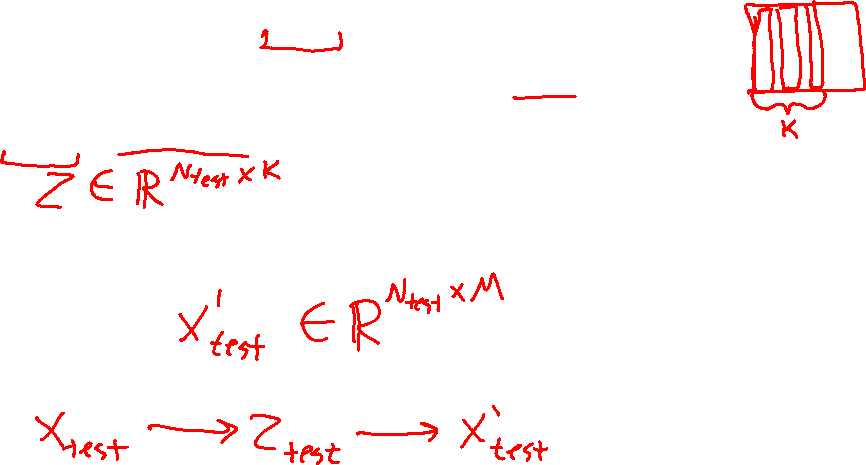 K
Z ∈ ℝ^{N_{test} × K}
X'_{test} ∈ ℝ^{N_{test} × M}
X_{test} → Z_{test} → X'_{test}